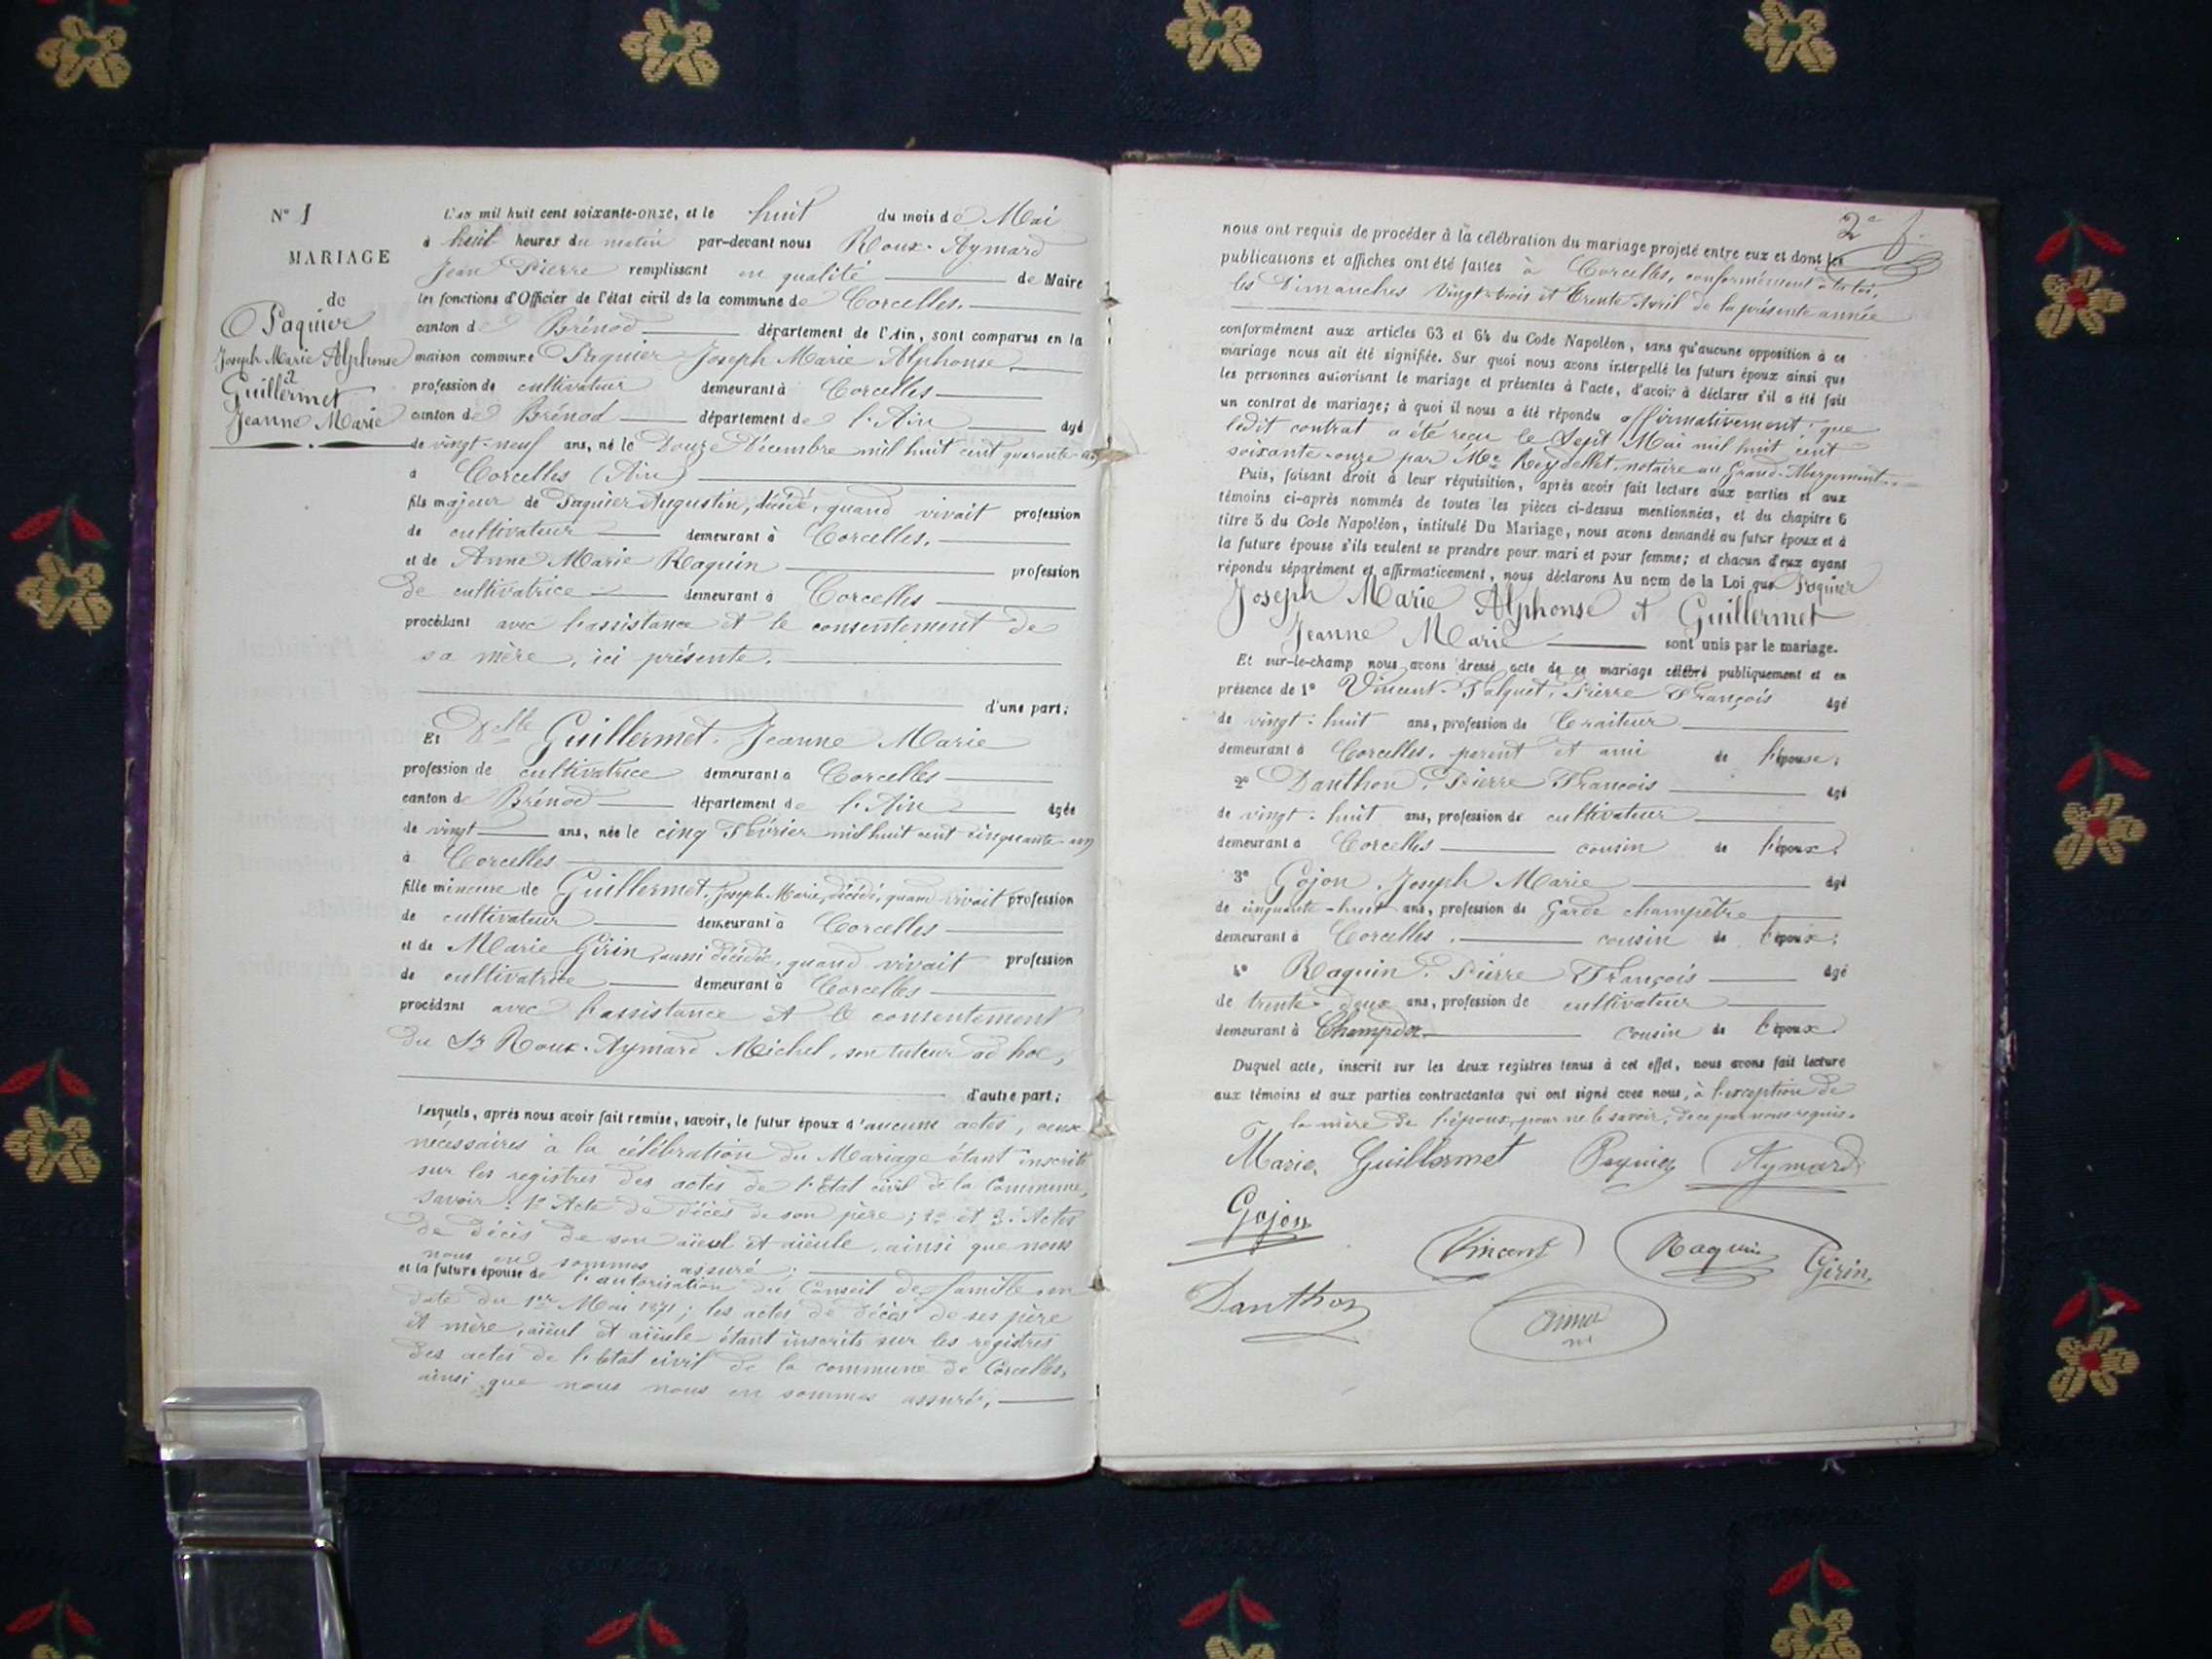 N° 1
MARIAGE
de
Paquier
Joseph Marie Alphonse
et
Guillermet
Jeanne Marie
L'an mil huit cent soixante-onze, et le huit du mois de Mai
à huit heures du matin par-devant nous Roux-Aymard
Jean Pierre remplissant en qualité de Maire
les fonctions d'Officier de l'état civil de la commune de Corcelles.
canton de Brénod département de l'Ain, sont comparus en la
maison commune Paquier Joseph Marie Alphonse.
profession de cultivateur demeurant à Corcelles
canton de Brénod département de l'Ain âgé
de vingt-neuf ans, né le Douze Décembre mil huit cent quarante-un
à Corcelles (Ain)
fils majeur de Paquier Augustin, décédé, quand vivait profession
de cultivateur demeurant à Corcelles.
et de Anne Marie Raquin profession
de cultivatrice demeurant à Corcelles
procédant avec l'assistance et le consentement de
sa mère, ici présente.
d'une part;
Et Delle Guillermet. Jeanne Marie
profession de cultivatrice demeurant à Corcelles
canton de Brénod département de l'Ain âgée
de vingt ans, née le cinq Février mil huit cent cinquante-un
à Corcelles
fille mineure de Guillermet, Joseph-Marie, décédé, quand vivait profession
de cultivateur demeurant à Corcelles
et de Marie Girin, aussi décédée, quand vivait profession
de cultivatrice demeurant à Corcelles
procédant avec l'assistance et le consentement
du Sr Roux-Aymard Michel, son tuteur ad hoc,
d'autre part;
Lesquels, après nous avoir fait remise, savoir, le futur époux d'aucuns actes, ceux
nécessaires à la célébration du Mariage étant inscrits
sur les registres des actes de l'Etat civil de la Commune,
savoir: 1° Acte de décès de son père; 2° et 3° Actes
de décès de son aïeul et aïeule, ainsi que nous
nous en sommes assuré;
et la future épouse de l'autorisation du Conseil de famille en
date du 1er Mai 1871; les actes de décès de ses père
et mère, aïeul et aïeule étant inscrits sur les registres
des actes de l'Etat civil de la commune de Corcelles,
ainsi que nous nous en sommes assuré.
2e f.
nous ont requis de procéder à la célébration du mariage projeté entre eux et dont les
publications et affiches ont été faites à Corcelles, conformément à la loi,
les Dimanches Vingt-trois et Trente Avril de la présente année
conformément aux articles 63 et 64 du Code Napoléon, sans qu'aucune opposition à ce
mariage nous ait été signifiée. Sur quoi nous avons interpellé les futurs époux ainsi que
les personnes autorisant le mariage et présentes à l'acte, d'avoir à déclarer s'il a été fait
un contrat de mariage; à quoi il nous a été répondu affirmativement: que
ledit contrat a été reçu le Sept Mai mil huit cent
soixante-onze par Me Reydellet, notaire au Grand-Abergement.
Puis, faisant droit à leur réquisition, après avoir fait lecture aux parties et aux
témoins ci-après nommés de toutes les pièces ci-dessus mentionnées, et du chapitre 6
titre 5 du Code Napoléon, intitulé Du Mariage, nous avons demandé au futur époux et à
la future épouse s'ils veulent se prendre pour mari et pour femme; et chacun d'eux ayant
répondu séparément et affirmativement, nous déclarons Au nom de la Loi que Paquier
Joseph Marie Alphonse et Guillermet
Jeanne Marie sont unis par le mariage.
Et sur-le-champ nous avons dressé acte de ce mariage célébré publiquement et en
présence de 1° Vincent-Falquet, Pierre François âgé
de vingt-huit ans, profession de Traiteur
demeurant à Corcelles, parent et ami de l'épouse;
2° Danthon, Pierre François âgé
de vingt-huit ans, profession de cultivateur
demeurant à Corcelles cousin de l'époux;
3° Gojon, Joseph Marie âgé
de cinquante-huit ans, profession de Garde champêtre
demeurant à Corcelles. cousin de l'époux;
4° Raquin, Pierre François âgé
de trente-deux ans, profession de cultivateur
demeurant à Champdor cousin de l'époux.
Duquel acte, inscrit sur les deux registres tenus à cet effet, nous avons fait lecture
aux témoins et aux parties contractantes qui ont signé avec nous, à l'exception de
la mère de l'époux, pour ne le savoir, de ce par nous requise.
Marie Guillermet Paquier Aymard
Gojon
Vincent Raquin Girin
Danthon